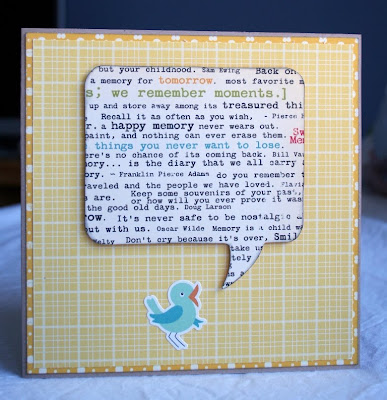 but your childhood. Sam Ewing Back on
a memory for tomorrow. most favorite m
s; we remember moments.]
up and store away among its treasured thi
Recall it as often as you wish, - Pierce
r. a happy memory never wears out.
paint, and nothing can ever erase them. Sw
things you never want to lose. Me
ere's no chance of its coming back. Bill Va
mory... is the diary that we all carry a
. - Franklin Pierce Adams do you remember t
raveled and the people we have loved. Flavia
s are. Keep some souvenirs of your past,
or how will you ever prove it was
the good old days. Doug Larson
row. It's never safe to be nostalgic a
out with us. Oscar Wilde Memory is a child w
elty Don't cry because it's over, Smil
take u